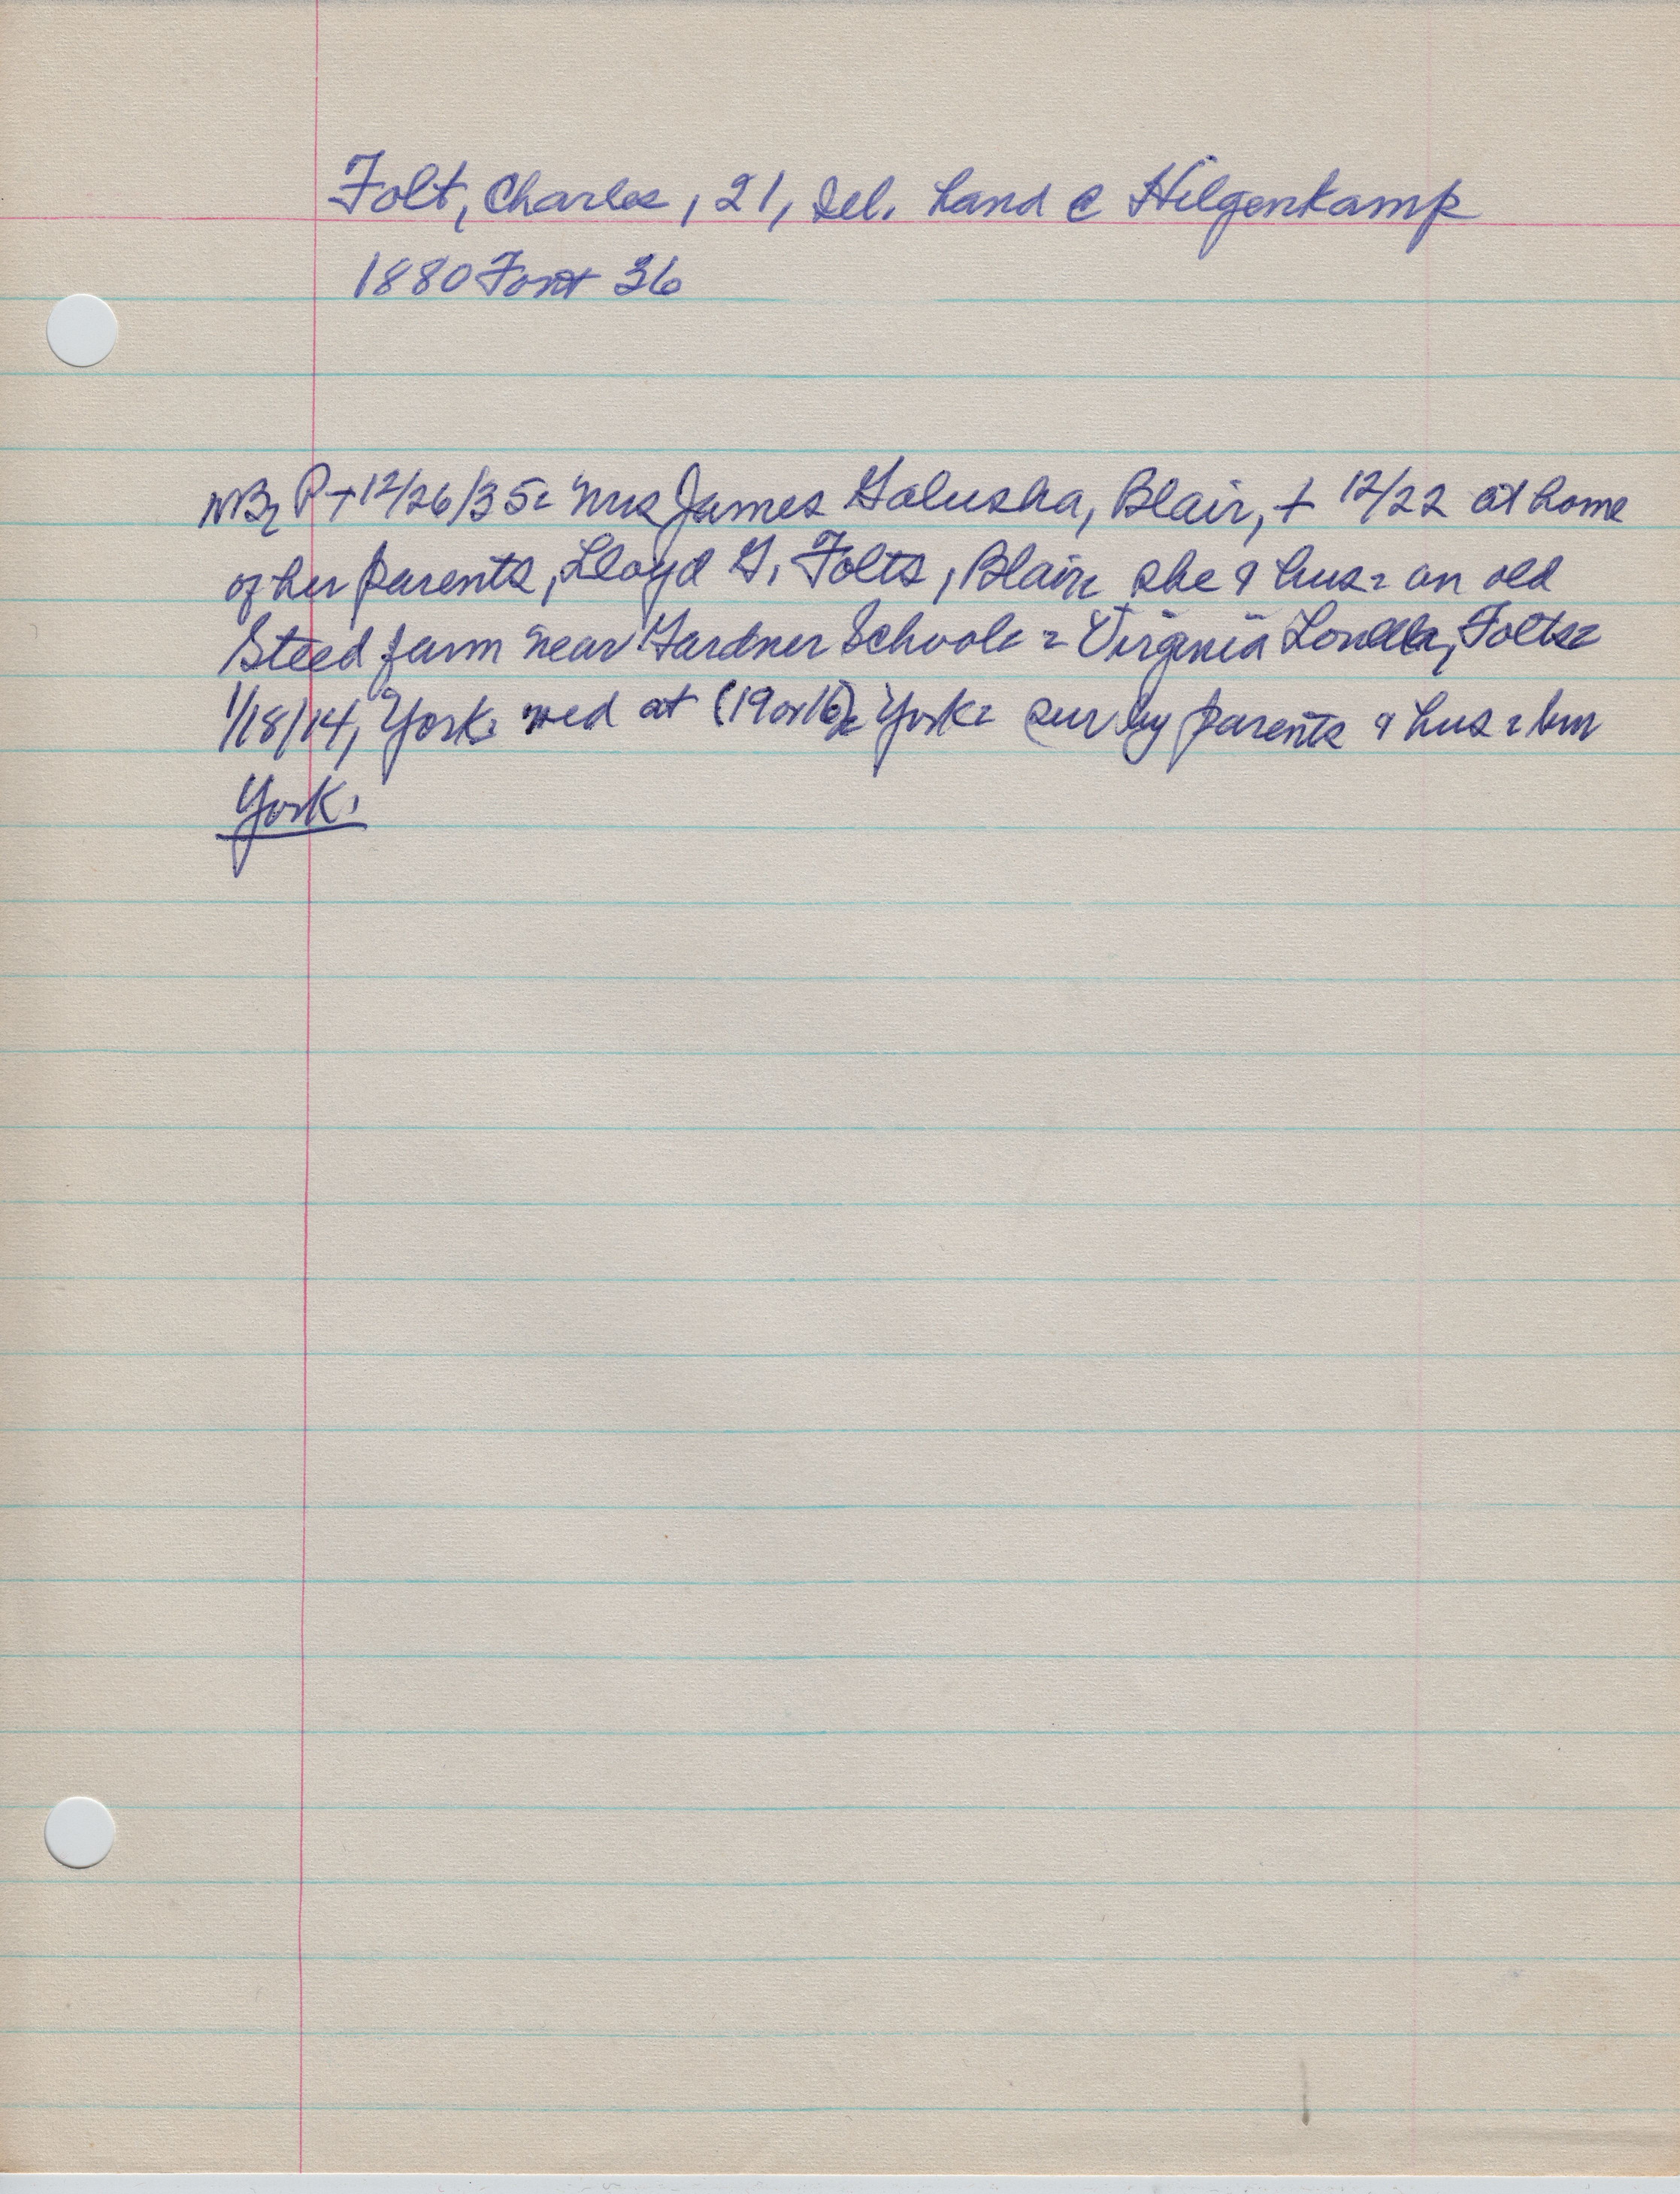 Folt, Charles, 21, Del. hand c Hilgenkamp
1880 Font 36
P+12/26/35= Mrs James Galusha, Blair, + 12/22 at home
of her parents, Lloyd G. Folts, Blair she & hus= on old
Steed farm near Gardner School = Virginia Folts=
1/18/14, York. wed at (19 or 16)= York= sur by parents & hus = bur
York.